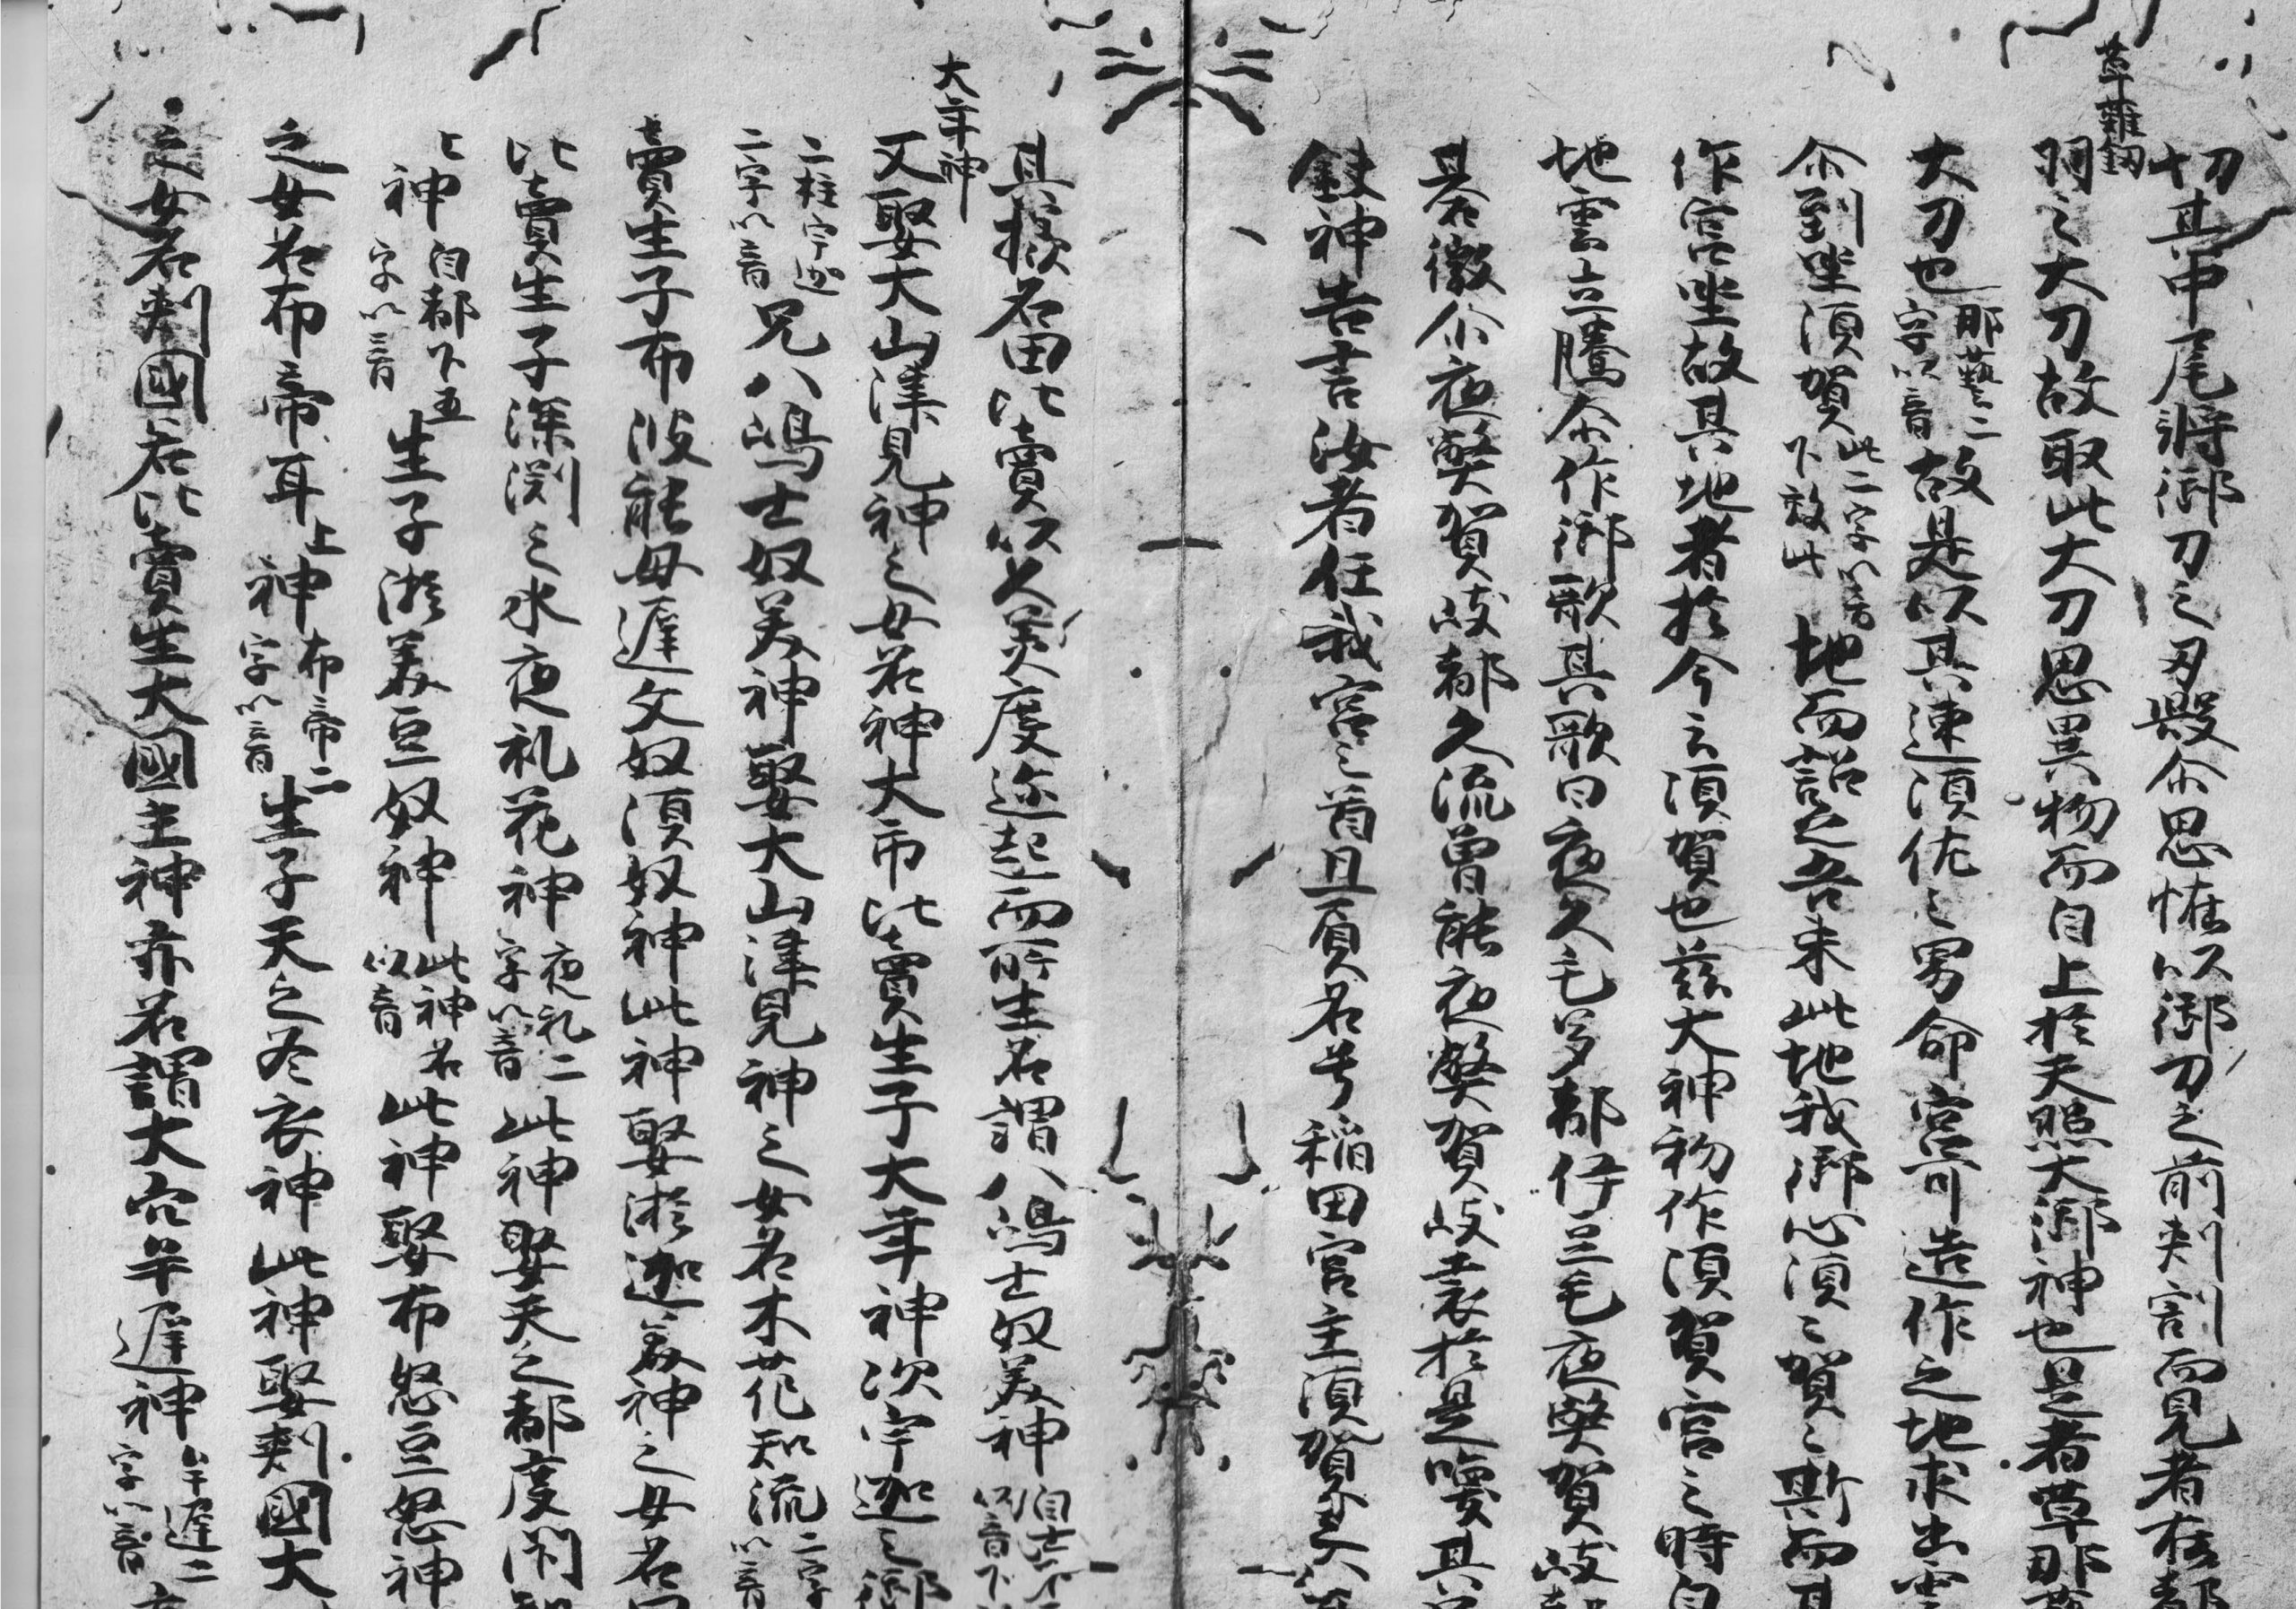 草薙釼
切其中尾時御刀之刃毀尒思恠以御刀之前刺割而見者在都
羽之大刀故取此大刀思異物而白上於天照大御神也是者草那藝
大刀也 那藝二字以音 故是以其速湏佐之男命宮可造作之地求出雲
尒到坐湏賀 此二字以音下效此 地而詔之吾来此地我御心湏〻賀〻斯而其
作宮坐故其地者於今云湏賀也茲大神初作湏賀宮之時自
地雲立騰尒作御歌其歌曰夜久毛多都伊豆毛夜弊賀岐
碁微尒夜弊賀岐都久流曽能夜弊賀岐袁於是喚其
鈦神告言汝者任我宮之首且負名号稲田宮主湏賀之八
其櫲名田比賣以久美度迩起而所生名謂八嶋士奴美神 自士下 以音下
大年神
又娶大山津見神之女名神大市比賣生子大年神次宇迦之御
二柱宇迦二字以音 兄八嶋士奴美神娶大山津見神之女名木花知流 二字以音
賣生子布波能母遅久奴湏奴神此神娶淤迦美神之女名日
比賣生子深渕之水夜礼花神 夜礼二字以音 此神娶天之都度閇
上神 自都下五字以音 生子淤美豆奴神 此神名以音 此神娶布怒豆怒神
之女名布帝耳上神 布帝二字以音 生子天之冬衣神此神娶刺國大
之女名刺國若比賣生大國主神亦名謂大穴牟遅神 牟遅二字以音